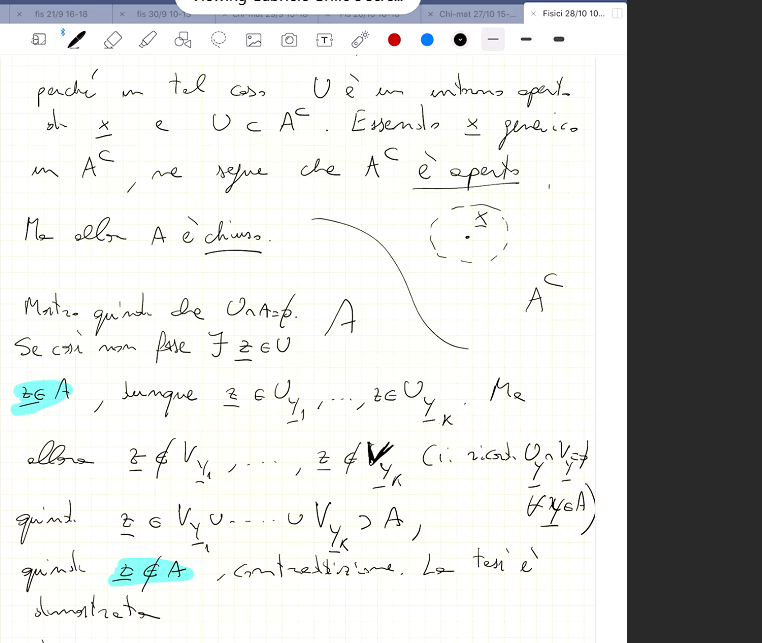 fis 21/9 16-18
fis 30/9 10-
Chi-mat 27/10 15-...
Fisici 28/10 10...
perché in tal caso U è un intorno aperto
di x e U ⊂ A^C. Essendo x generico
in A^C, ne segue che A^C è aperto.
Ma allora A è chiuso.
x
A^C
A
Mostro quindi che U∩A=∅.
Se così non fosse ∃ z ∈ U
z ∈ A, dunque z ∈ U_{y_1}, ..., z ∈ U_{y_K}. Ma
allora z ∉ V_{y_1}, ..., z ∉ V_{y_K} (si ricordi U_y ∩ V_y = ∅
∀ y ∈ A)
quindi z ∈ V_{y_1} ∪ .... ∪ V_{y_K} ⊃ A,
quindi z ∉ A, contraddizione. La tesi è
dimostrata